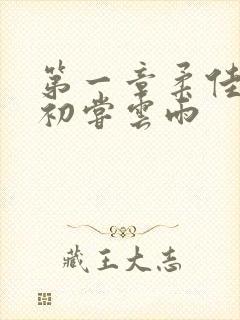 第一章柔佳
初嘗雲雨
藏王大志